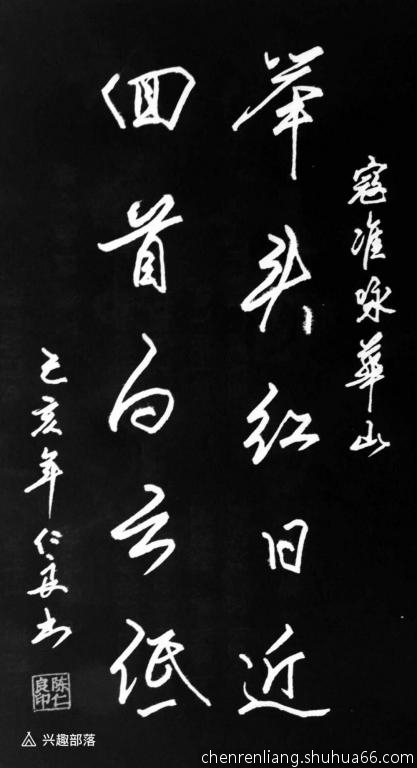 寇准咏华山
举头红日近
回首白云低
己亥年仁良书
陈仁良印
兴趣部落
chenrenliang.shuhua66.com